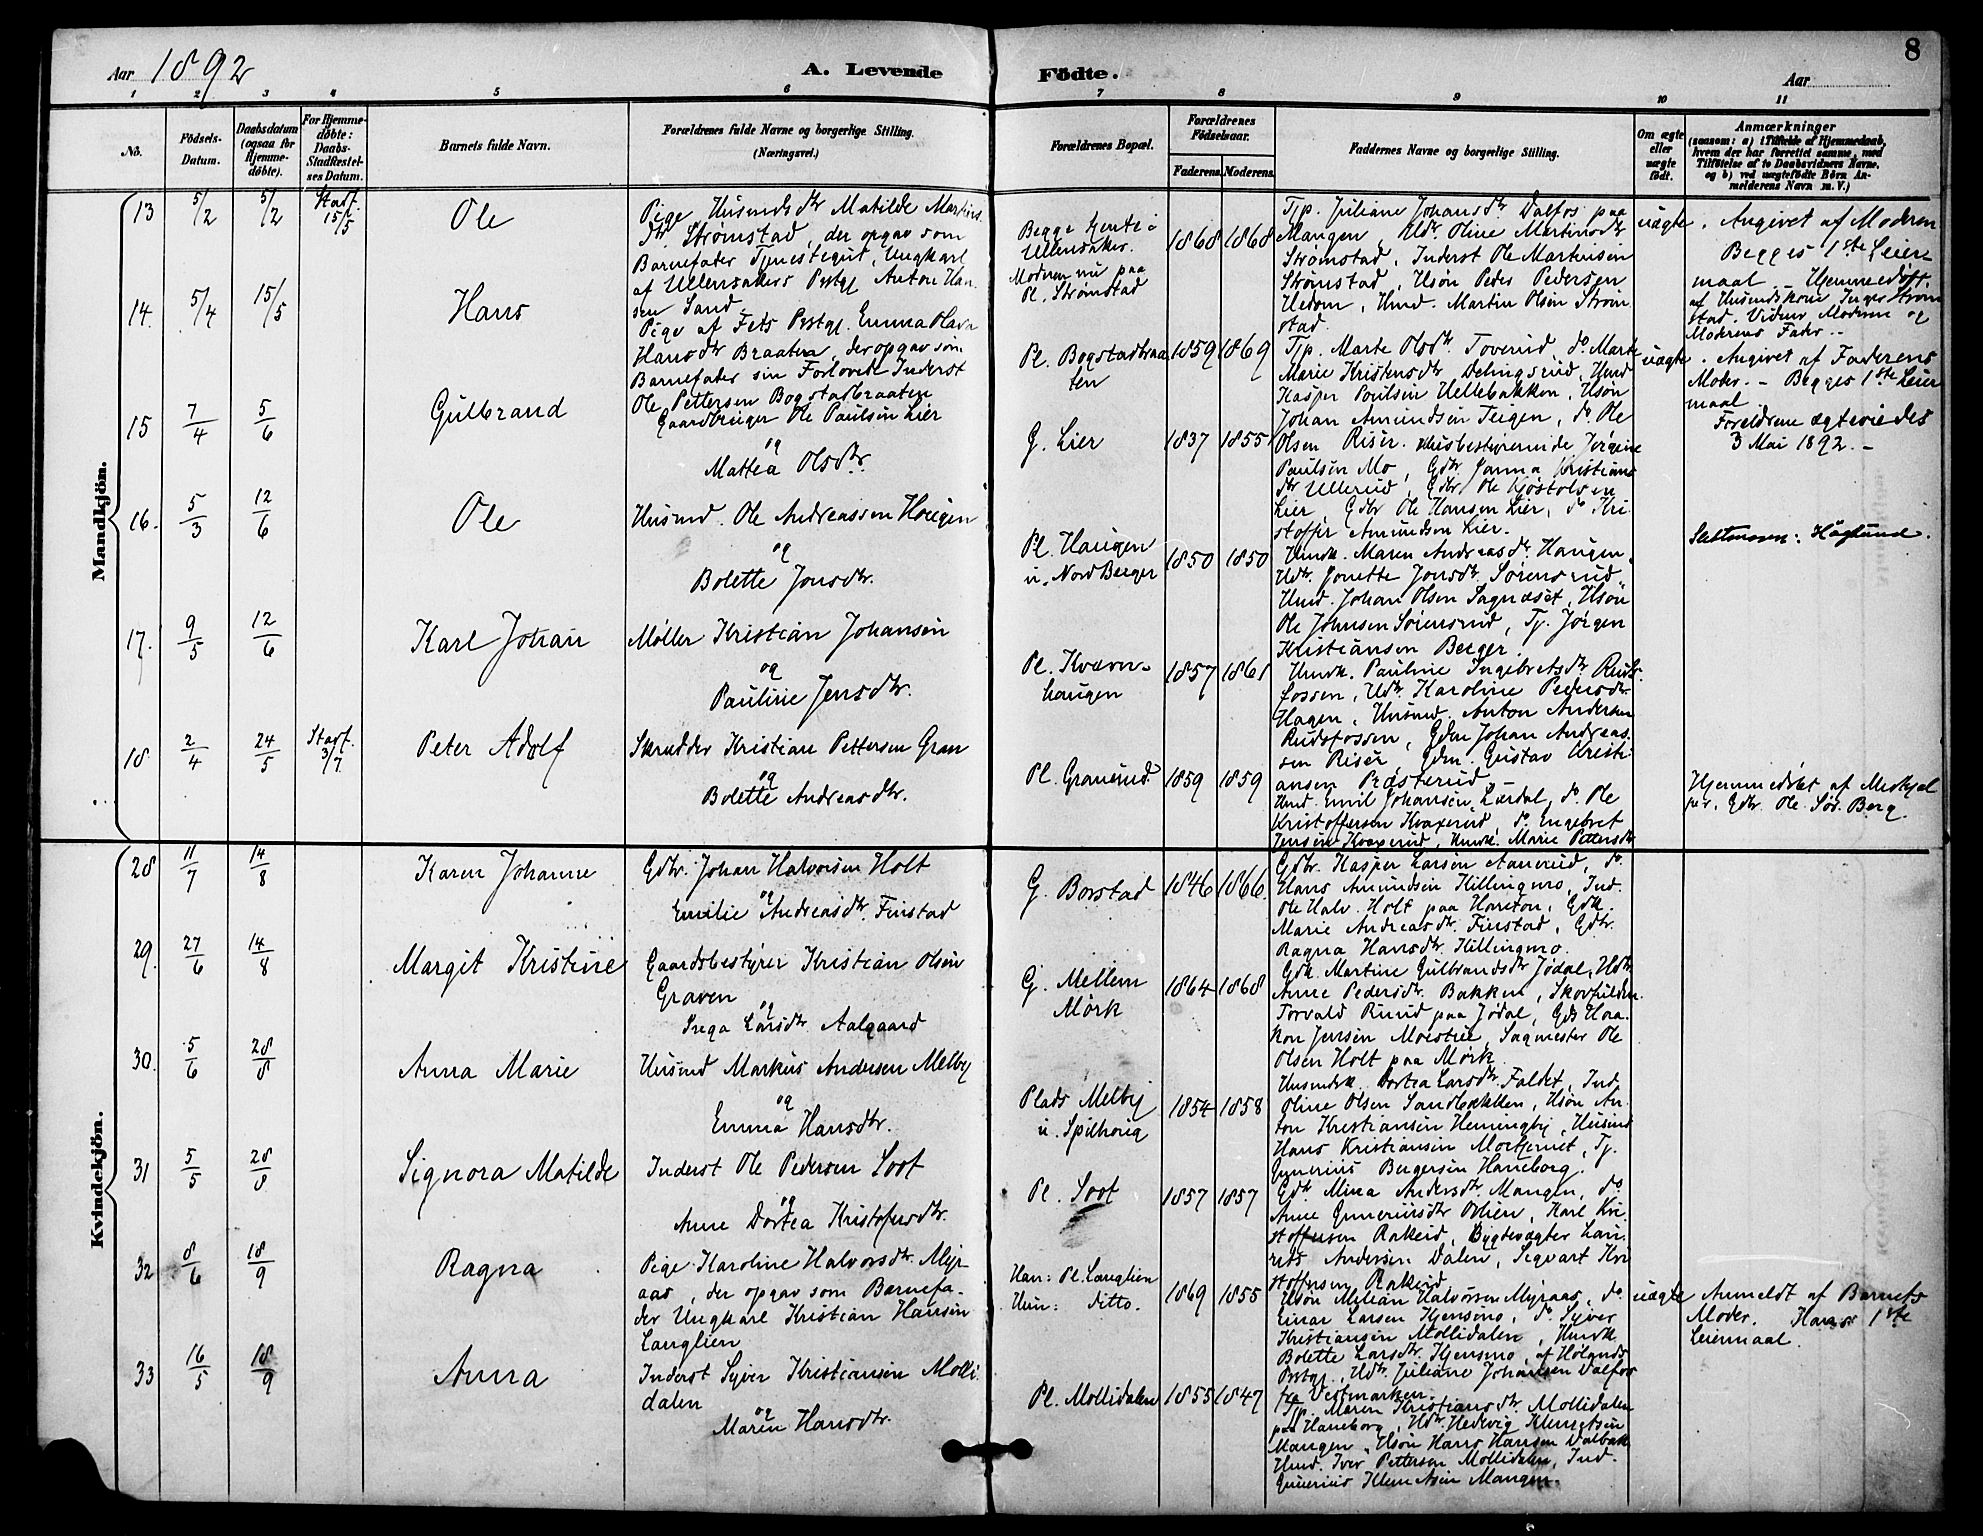 8
Aar 1892
A. Levende
Fødte.
Aar
1 2 3 4 5 6 7 8 9 10 11
No.
Fødsels-
Datum.
Daabsdatum
(ogsaa for
Hjemme-
døbte).
For Hjemme-
døbte:
Daabs-
Stadfæstel-
ses Datum.
Barnets fulde Navn.
Forældrenes fulde Navne og borgerlige Stilling.
(Næringsvei.)
Forældrenes Bopæl.
Forældrenes
Fødselsaar.
Faderens. Moderens.
Faddernes Navne og borgerlige Stilling.
Om ægte
eller
uægte
født.
Anmærkninger
(saasom: a) i Tilfælde af Hjemmedaab,
hvem der har forrettet samme, med
Tilføielse af to Daabsvidners Navne.
og b) ved uægtefødte Børn An-
melderens Navn m. V.)
Mandkjön.
13
5/2
5/2
Stadf.
15/5
Ole
Pige Husmdsdtr Matilde Martins
dtr. Strømstad, der opgav som
Barnefader Tjenestegut, Ungkarl
af Ullensakers Prstgj Anton Han
sen Sand
Begge tjente i
Ullensaker.
Modren nu paa
Pl. Strømstad
1868 1868
Tjp. Juliane Johansdtr Dalfos paa
Mangen, Udtr. Oline Martinsdtr
Strømstad, Inderst Ole Martinsen
Strømstad, Usøn Peder Pedersen
Uedom, Husmd. Martin Olsen Strøm
stad.
uægte
. Angivet af Modren
Begges 1ste Leier
maal. Hjemmedøbt.
af Husmdskone Inger Strøm
stad. Vidner Modren og
Moderens Fader. -
14.
5/4
15/5
Hans
Pige af Fets Prstgj. Emma Olava
Hansdtr Braaten, der opgav som
Barnefader sin Forlovede Inderst
Ole Pettersen Bogstadbraaten
Pl. Bogstadbraa
ten
1859 1869
Tjp. Marte Olsdtr. Toverud, do. Marte
Marie Kristensdtr Delingsrud, Husmd
Kasper Poulsen Hellebakken, Usøn
Johan Amundsen Teigen, do Ole
Olsen Riser.
uægte
. Angivet af Faderens
Moder. - Begges 1ste Leier
maal.
Foreldrene ægteviedes
3 Mai 1892. -
15
7/4
5/6
Gulbrand
Gaardbruger Ole Paulsen Lier
og
Mattea Olsdtr.
G. Lier
1837 1855
Husbestyrerinde Jørgine
Paulsen Mo, Gdtr. Janna Kristians
dtr Ullerud, Gdbr Ole Kjøstolsen
Lier, Gdbr Ole Hansen Lier, do Kri
stoffer Amundsen Lier.
16.
5/3
12/6
Ole
Husmd. Ole Andreassen Haugen
og
Bolette Jonsdtr.
Pl. Haugen
u. Nord Berger
1850 1850
Husmdk. Maren Andreasdtr Haugen.
Udtr. Jonette Jonsdtr Sørensrud,
Husmd. Johan Olsen Sagnæset, Usøn
Ole Johnsen Sørensrud, Tj. Jørgen
Kristiansen Berger.
17.
9/5
12/6
Karl Johan
Møller Kristian Johansen
og
Pauline Jensdtr.
Pl. Kværn-
haugen
1857 1861
Husmdk. Pauline Ingebretsdtr Ruds
fossen, Udtr. Karoline Pedersdtr
Hagen, Husmd. Anton Andersen
Rudsfossen, Gdm Johan Andreas
sen Riser, Gdm. Gustav Kristi
ansen Prästerud
18
2/4
24/5
Stadf.
3/7
Peter Adolf
Skrædder Kristian Pettersen Gran
og
Bolette Andreasdtr.
Pl. Granerud
1859 1859
Husmd. Emil Johansen Lurdal, do. Ole
Kristoffersen Kvaxerud, do. Engebret
Jensen Kvaxerud, Husmdk. Marie Pettersdtr
Hjemmedøbt af Medhjel
per, Gdbr. Ole Sør. Berg.
Kvindekjön.
28
11/7
14/8
Karen Johanne
Gdbr. Johan Halvorsen Holt
og
Emilie Andreasdtr. Finstad
G. Borstad
1846 1866
Gdbr. Kasper Larsen Aanerud, do.
Hans Amundsen Killingmo, Ind.
Ole Halv. Holt paa Harston, Gdk.
Marie Andreasdtr. Finstad, Gdtr.
Ragna Hansdtr Killingmo.
29.
27/6
14/8
Margit Kristine
Gaardsbestyrer Kristian Olsen
Graven
og
Inga Larsdtr. Aalgaard
G. Mellem
Mörk
1864 1868
Gdk. Martine Gulbrandsdtr Jødal, Udtr.
Anne Pedersdtr. Bakken,
Torvald Ruud paa Jødal, Gdbr Haa-
kon Jensen Moestue, Sagmester Ole
Olsen Holt paa Mørk
30.
5/6
28/8
Anna Marie
Husmd Markus Andersen Melby
og
Emma Hansdtr.
Plads Melby
u. Spilhoug
1854 1858
Husmdk. Dortea Larsdtr. Faldet, Ind.
Oline Olsen Sandbækken, Usøn An-
ton Kristiansen Hemingby, Husmd
Hans Kristiansen Mortjernet, Tj.
Gunerius Bergersen Haneborg.
31
5/5
28/8
Signora Matilde
Inderst Ole Pedersen Soot
og
Anne Dortea Kristofersdtr.
Pl. Soot
1857 1857
Gdtr Mina Andersdtr. Mangen, do
Anne Guneriusdtr Oshen, Karl Kri
stoffersen Rakeid, Bygdevægter Lau-
rits Andersen Dalen, Segvart Kri
stoffersen Rakeid
32
8/6
18/9
Ragna
Pige Karoline Halvorsdtr. Myr
aas, der opgav som Barnefa-
der Ungkarl Kristian Hansen
Langlien
Han: Pl. Langlien
Hun: ditto.
1869 1855
Usøn Melian Halvorsen Myraas, do
Einar Larsen Kjensmo, do. Syver
Kristiansen Mollidalen, Husmdk
Bolette Larsdtr. Kjensmo af Hølands
Prstgj., Udtr. Juliane Johansen Dalfos
fra Vestmarken.
uægte
Anmeldt af Barnets
Moder. Hans 1ste
Leiermaal.
33
16/5
18/9
Anna
Inderst Syver Kristiansen Molli
dalen
og
Maren Hansdtr.
Pl. Mollidalen
1855 1847
Tjp. Maren Kristiansdtr. Mollidalen
paa Haneborg, Udtr. Hedevig Klemetsen
Mangen, Usøn Hans Hansen Dalbak
Husmd. Iver Pettersen Mollidalen, Ind.
Gunerius Klemetsen Mangen.